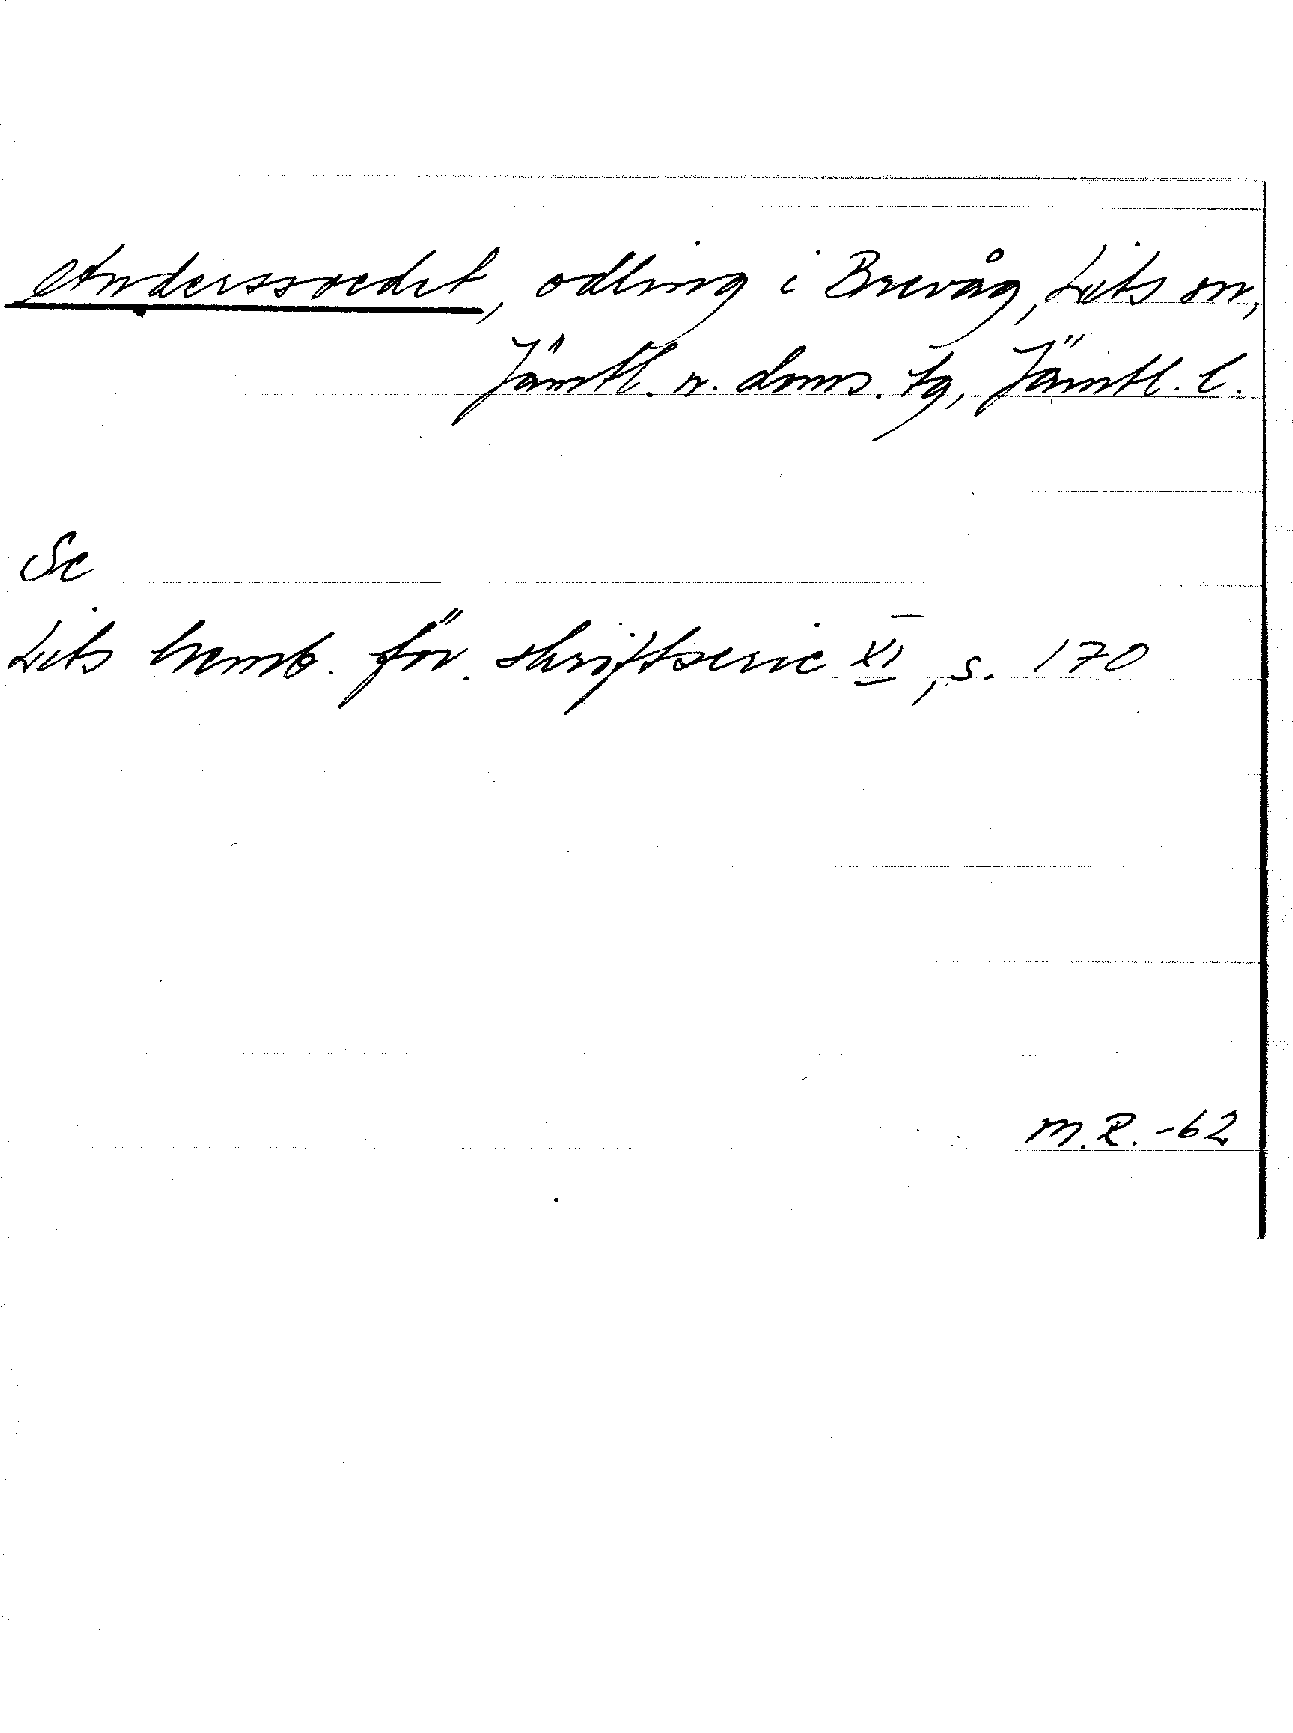 Anderssvedet, odling i Brevåg, Lits sn,
Jämtl. n. doms. tg, Jämtl. l.
Se
Lits hemb. för. skriftserie XI, s. 170
M.R. -62